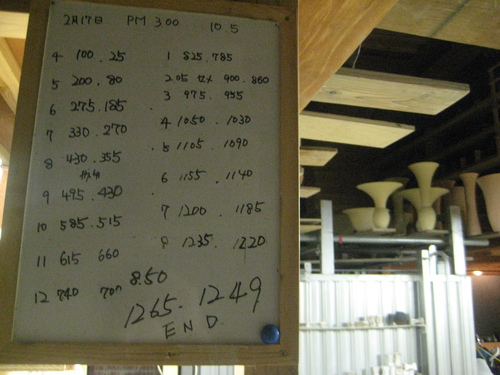 2月17日 PM 3.00 10.5
4 100.25 1 825.785
5 200.80 2.05 セメ 900.860
6 275.185 3 975.935
7 330.270 4 1050.1030
8 430.355 5 1105.1090
9 495.430 6 1155.1140
10 585.515 7 1200.1185
11 615 660 8 1235.1220
12 740 700 8.50
1265.1249
END